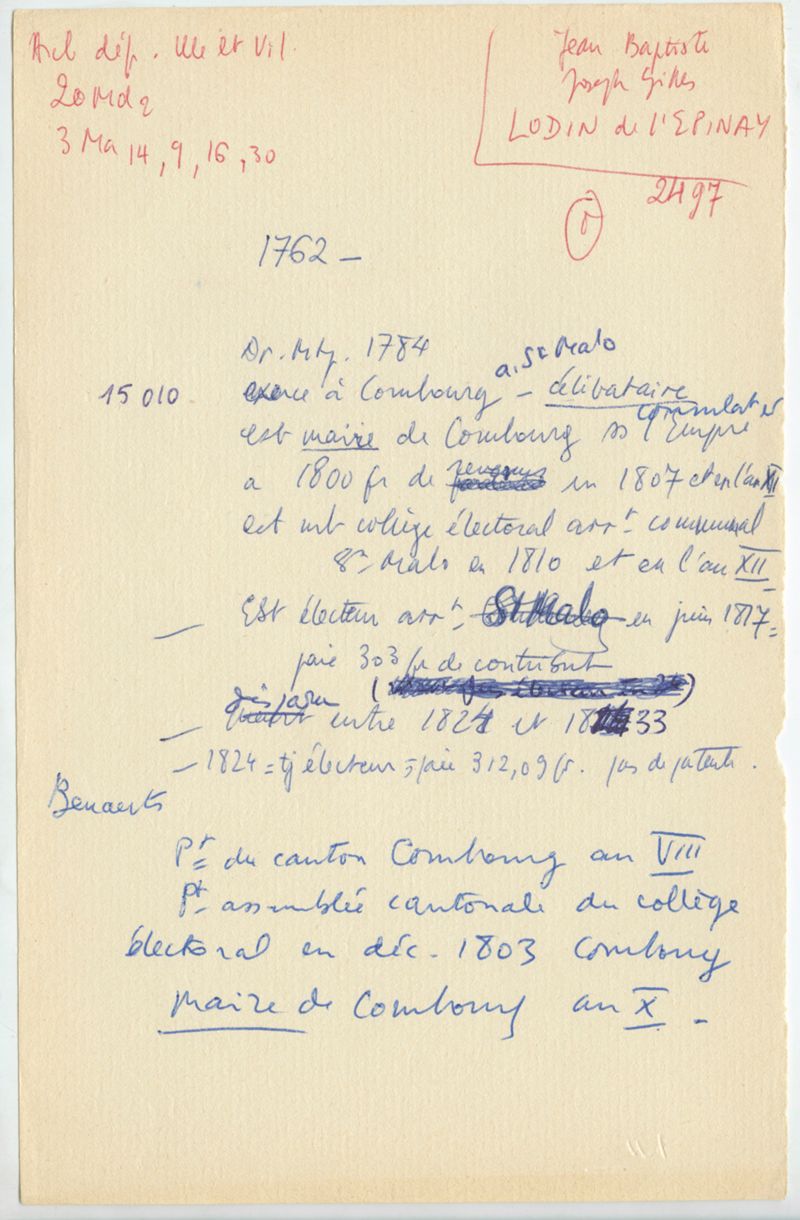 Arch dép. Ille et Vil.
20 Md 2
3 Ma 14, 9, 16, 30
Jean Baptiste
Joseph Gilles
LODIN de l'EPINAY
2497
1762 –
Dr. Mtp. 1784
a. St Malo
15 010 exerce à Combourg – célibataire
consulat et
est maire de Combourg ss l'Empire
a 1800 fr de revenus en 1807 et en l'an XII
est mb collège électoral arrt communal
St Malo en 1810 et en l'an XII
– Est électeur arrt St Malo en juin 1817 =
paie 303 fr de contribut
disparu
– meurt entre 1824 et 1833
– 1824 = tj électeur = paie 312,09 fr. pas de patente.
Benaerts
Pt du canton Combourg an VIII
Pt assemblée cantonale du collège
électoral en déc. 1803 Combourg
Maire de Combourg an X –